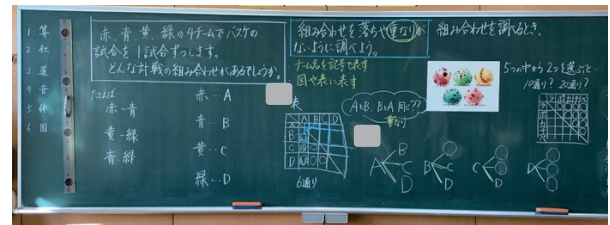 1 算
2 社
3 道
4 音
5 体
6 国
赤、青、黄、緑の4チームでバスケの
試合を1試合ずつします。
どんな対戦の組み合わせがあるでしょうか。
たとえば…
赤-青
黄-緑
青-緑
赤…A
青…B
黄…C
緑…D
組み合わせを落ちや重なりが
ないように調べよう。
チーム名を記号で表す
図や表に表す
表
A B C D
A
B
C
D
6通り
AとB、BとA 同じ??
重なり
A B C D
B C D
C D
D
組み合わせを調べるとき、
5つの中から2つを選ぶと…
10通り? 20通り?